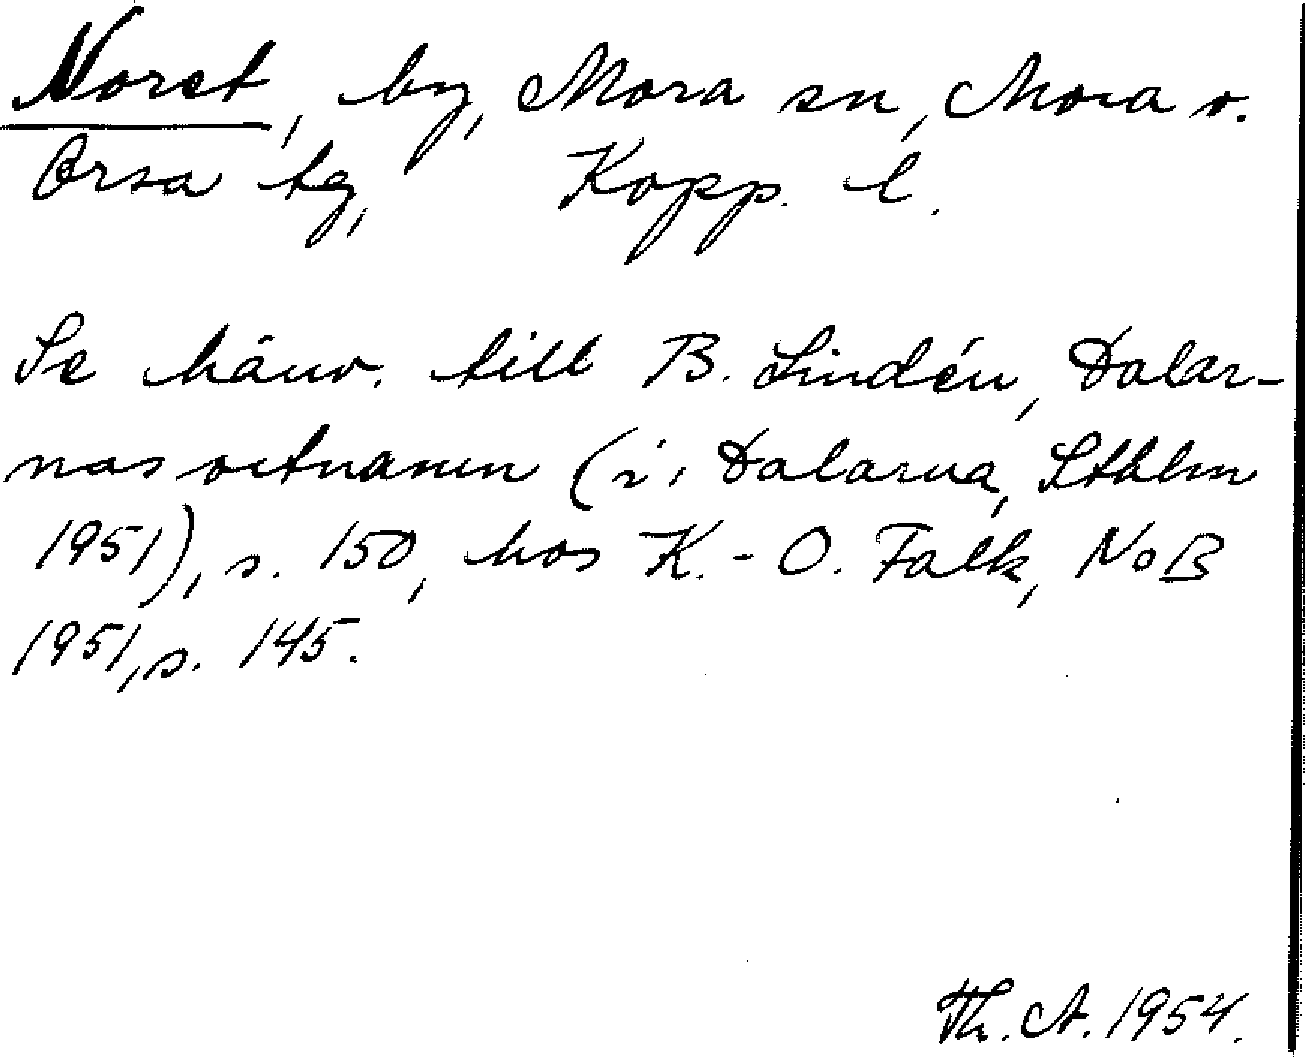 Noret, by, Mora sn, Mora o.
Orsa tg, Kopp. l.
Se hänv. till B. Lindén, Dalar-
nas ortnamn (i: Dalarna, Sthlm
1951), s. 150, hos K.-O. Falk, NoB
1951, s. 145.
Th. A. 1954.